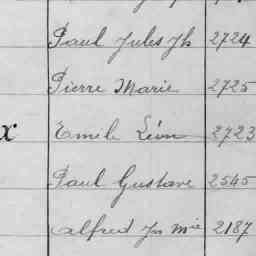 Paul Jules Jh 2724
Pierre Marie 2725
x Emile Léon 2723
Paul Gustave 2545
Alfred Jn Mie 2187